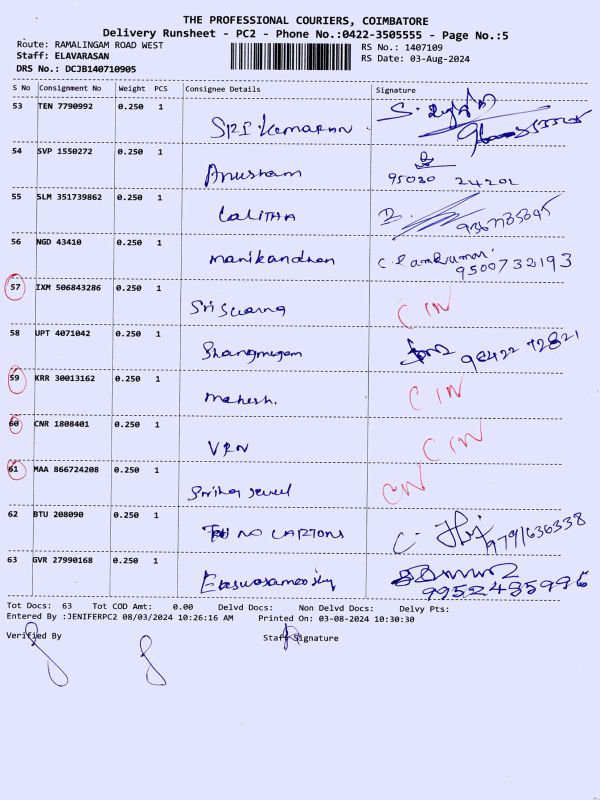 THE PROFESSIONAL COURIERS, COIMBATORE
Delivery Runsheet - PC2 - Phone No.:0422-3505555 - Page No.:5
Route: RAMALINGAM ROAD WEST
Staff: ELAVARASAN
DRS No.: DCJB140710905
RS No.: 1407109
RS Date: 03-Aug-2024
S No Consignment No Weight PCS Consignee Details Signature
53 TEN 7790992 0.250 1
SRI Kumaran
54 SVP 1550272 0.250 1
Anusham
95030 24202
55 SLM 351739862 0.250 1
Lalitha
56 NGD 43410 0.250 1
Manikandhan
9500732193
57 IXM 506843286 0.250 1
Sri Swarna C IN
58 UPT 4071042 0.250 1
Shangmugam
90422 72821
59 KRR 30013162 0.250 1
Mahesh. C IN
60 CNR 1808401 0.250 1
VRN C IN
61 MAA 866724208 0.250 1
CIN
62 BTU 208090 0.250 1
NO CARTONS
9791636338
63 GVR 27990168 0.250 1
9952485996
Tot Docs: 63 Tot COD Amt: 0.00 Delvd Docs: Non Delvd Docs: Delvy Pts:
Entered By :JENIFERPC2 08/03/2024 10:26:16 AM Printed On: 03-08-2024 10:30:30
Verified By Staff Signature